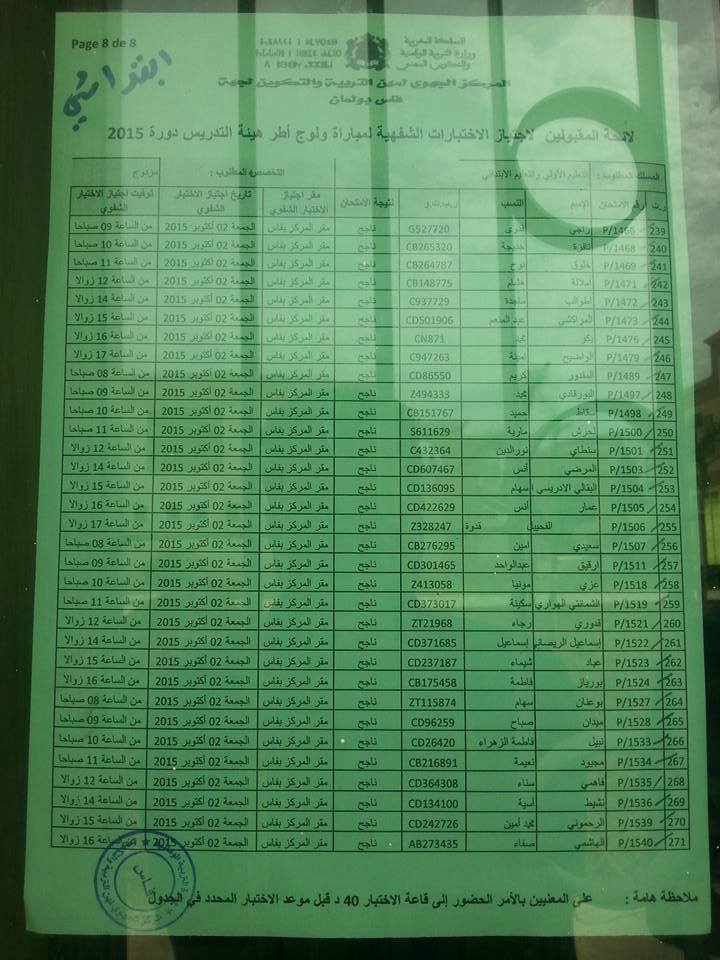 Page 8 de 8
ابتدائي
المملكة المغربية
وزارة التربية الوطنية
والتكوين المهني
المركز الجهوي لمهن التربية والتكوين لجهة
فاس بولمان
لائحة المقبولين لاجتياز الاختبارات الشفهية لمباراة ولوج أطر هيئة التدريس دورة 2015
المسلك المطلوب : التعليم الأولي والتعليم الابتدائي التخصص المطلوب : مزدوج
ر.ت رقم الامتحان الإسم النسب ر.ب.ت.و نتيجة الامتحان مقر اجتياز الاختبار الشفوي تاريخ اجتياز الاختبار الشفوي توقيت اجتياز الاختبار الشفوي
239 P/1466 راجي G527720 ناجح مقر المركز بفاس الجمعة 02 أكتوبر 2015 من الساعة 09 صباحا
240 P/1468 خديجة CB265320 ناجح مقر المركز بفاس الجمعة 02 أكتوبر 2015 من الساعة 10 صباحا
241 P/1469 خلوق نوح CB264787 ناجح مقر المركز بفاس الجمعة 02 أكتوبر 2015 من الساعة 11 صباحا
242 P/1471 املالة هشام CB148775 ناجح مقر المركز بفاس الجمعة 02 أكتوبر 2015 من الساعة 12 زوالا
243 P/1472 اطوالب ماجدة C937729 ناجح مقر المركز بفاس الجمعة 02 أكتوبر 2015 من الساعة 14 زوالا
244 P/1473 المراكشي عبد المنعم CD501906 ناجح مقر المركز بفاس الجمعة 02 أكتوبر 2015 من الساعة 15 زوالا
245 P/1476 يكو محمد CN871 ناجح مقر المركز بفاس الجمعة 02 أكتوبر 2015 من الساعة 16 زوالا
246 P/1479 الواضيح امينة C947263 ناجح مقر المركز بفاس الجمعة 02 أكتوبر 2015 من الساعة 17 زوالا
247 P/1489 المقدور كريم CD86550 ناجح مقر المركز بفاس الجمعة 02 أكتوبر 2015 من الساعة 08 صباحا
248 P/1497 البورقادي محمد Z494333 ناجح مقر المركز بفاس الجمعة 02 أكتوبر 2015 من الساعة 09 صباحا
249 P/1498 حميد CB151767 ناجح مقر المركز بفاس الجمعة 02 أكتوبر 2015 من الساعة 10 صباحا
250 P/1500 لحرش مارية S611629 ناجح مقر المركز بفاس الجمعة 02 أكتوبر 2015 من الساعة 11 صباحا
251 P/1501 سنطاي نورالدين C432364 ناجح مقر المركز بفاس الجمعة 02 أكتوبر 2015 من الساعة 12 زوالا
252 P/1503 المرضي أنس CD607467 ناجح مقر المركز بفاس الجمعة 02 أكتوبر 2015 من الساعة 14 زوالا
253 P/1504 البقالي الادريسي سهام CD136095 ناجح مقر المركز بفاس الجمعة 02 أكتوبر 2015 من الساعة 15 زوالا
254 P/1505 عمار أنس CD422629 ناجح مقر المركز بفاس الجمعة 02 أكتوبر 2015 من الساعة 16 زوالا
255 P/1506 الفحييل قدوة Z328247 ناجح مقر المركز بفاس الجمعة 02 أكتوبر 2015 من الساعة 17 زوالا
256 P/1507 سعيدي امين CB276295 ناجح مقر المركز بفاس الجمعة 02 أكتوبر 2015 من الساعة 08 صباحا
257 P/1511 ارفيق عبدالواحد CD301465 ناجح مقر المركز بفاس الجمعة 02 أكتوبر 2015 من الساعة 09 صباحا
258 P/1518 عزي مونيا Z413058 ناجح مقر المركز بفاس الجمعة 02 أكتوبر 2015 من الساعة 10 صباحا
259 P/1519 الشمانتي الهواري سكينة CD373017 ناجح مقر المركز بفاس الجمعة 02 أكتوبر 2015 من الساعة 11 صباحا
260 P/1521 قدوري رجاء ZT21968 ناجح مقر المركز بفاس الجمعة 02 أكتوبر 2015 من الساعة 12 زوالا
261 P/1522 إسماعيل الريصاني إسماعيل CD371685 ناجح مقر المركز بفاس الجمعة 02 أكتوبر 2015 من الساعة 14 زوالا
262 P/1523 عباد شيماء CD237187 ناجح مقر المركز بفاس الجمعة 02 أكتوبر 2015 من الساعة 15 زوالا
263 P/1524 بورياز فاطمة CB175458 ناجح مقر المركز بفاس الجمعة 02 أكتوبر 2015 من الساعة 16 زوالا
264 P/1527 بوعنان سهام ZT115874 ناجح مقر المركز بفاس الجمعة 02 أكتوبر 2015 من الساعة 08 صباحا
265 P/1528 ميدان صباح CD96259 ناجح مقر المركز بفاس الجمعة 02 أكتوبر 2015 من الساعة 09 صباحا
266 P/1533 نبيل فاطمة الزهراء CD26420 ناجح مقر المركز بفاس الجمعة 02 أكتوبر 2015 من الساعة 10 صباحا
267 P/1534 مجبود نعيمة CB216891 ناجح مقر المركز بفاس الجمعة 02 أكتوبر 2015 من الساعة 11 صباحا
268 P/1535 فاهمي سناء CD364308 ناجح مقر المركز بفاس الجمعة 02 أكتوبر 2015 من الساعة 12 زوالا
269 P/1536 نشيط آسية CD134100 ناجح مقر المركز بفاس الجمعة 02 أكتوبر 2015 من الساعة 14 زوالا
270 P/1539 الرحموني محمد أمين CD242726 ناجح مقر المركز بفاس الجمعة 02 أكتوبر 2015 من الساعة 15 زوالا
271 P/1540 الهاشمي صفاء AB273435 ناجح مقر المركز بفاس الجمعة 02 أكتوبر 2015 من الساعة 16 زوالا
ملاحظة هامة : على المعنيين بالأمر الحضور إلى قاعة الاختبار 40 د قبل موعد الاختبار المحدد في الجدول